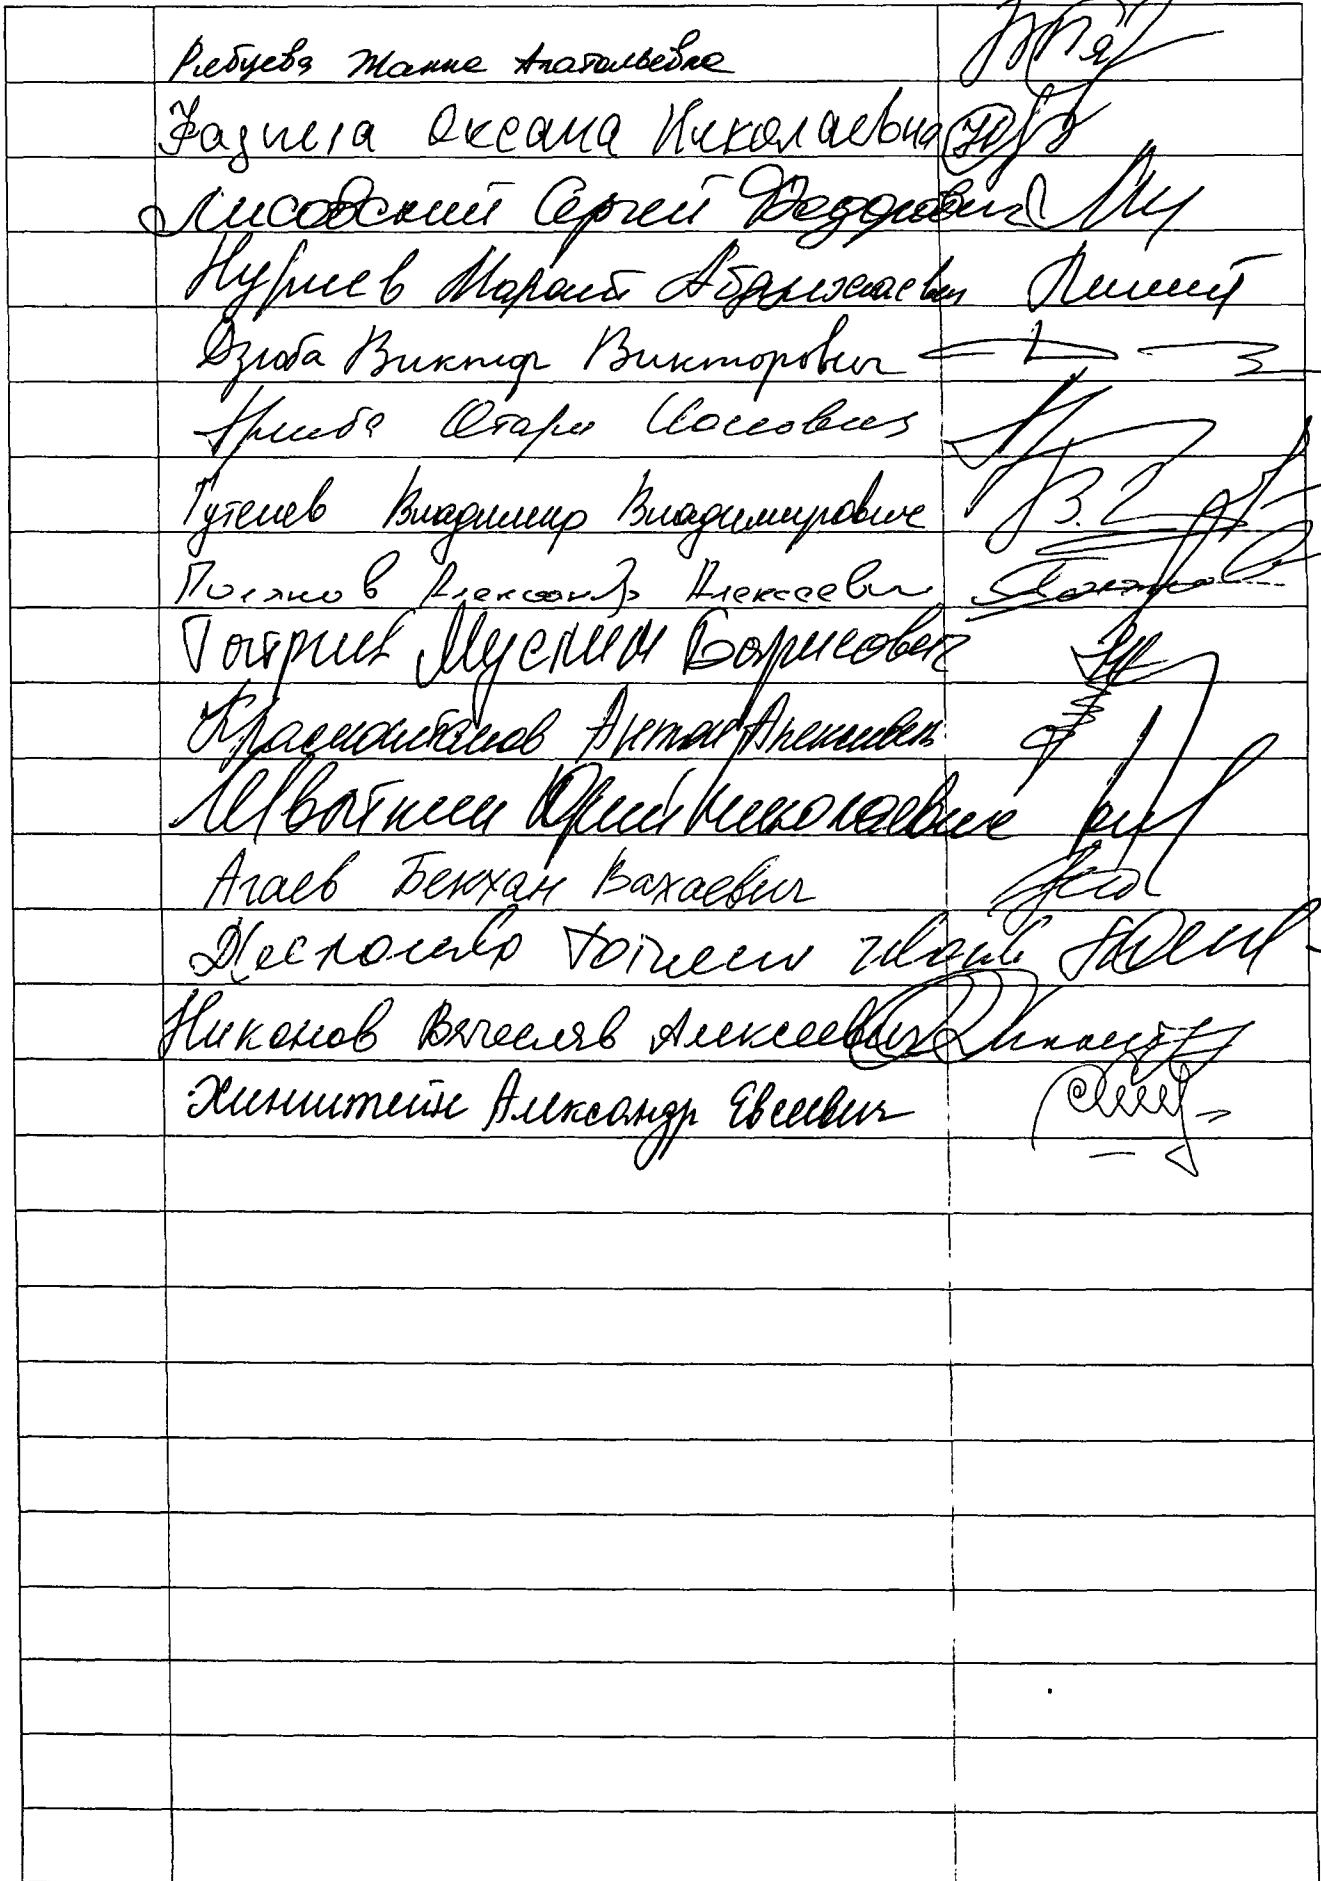 Рябцева Жанна Анатольевна
Фадина Оксана Николаевна
Лисовский Сергей Федорович
Нуриев Марат Абдулхаевич
Дзюба Виктор Викторович
Аршба Отари Ионович
Гутенев Владимир Владимирович
Поляков Александр Алексеевич
Татриев Муслим Борисович
Красноштанов Антон Алексеевич
Швыткин Юрий Николаевич
Агаев Бекхан Вахаевич
Никонов Вячеслав Алексеевич
Хинштейн Александр Евсеевич